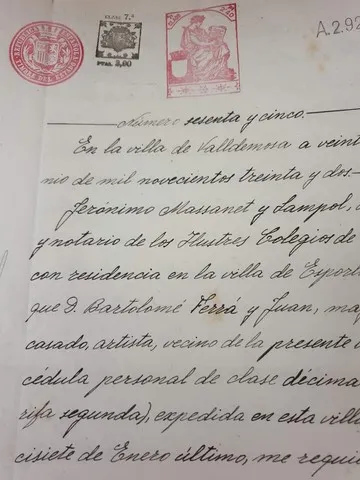 CLASE 7.ª
PTAS. 3,00
A.2.92
Número sesenta y cinco.
En la villa de Valldemosa a veinti
nio de mil novecientos treinta y dos.
Jerónimo Massanet y Sampol,
y notario de los Ilustres Colegios de
con residencia en la villa de Esporl
que D. Bartolomé Ferrá y Juan, ma
casado, artista, vecino de la presente
cédula personal de clase décima
rifa segunda), expedida en esta villa
cisiete de Enero último, me requi